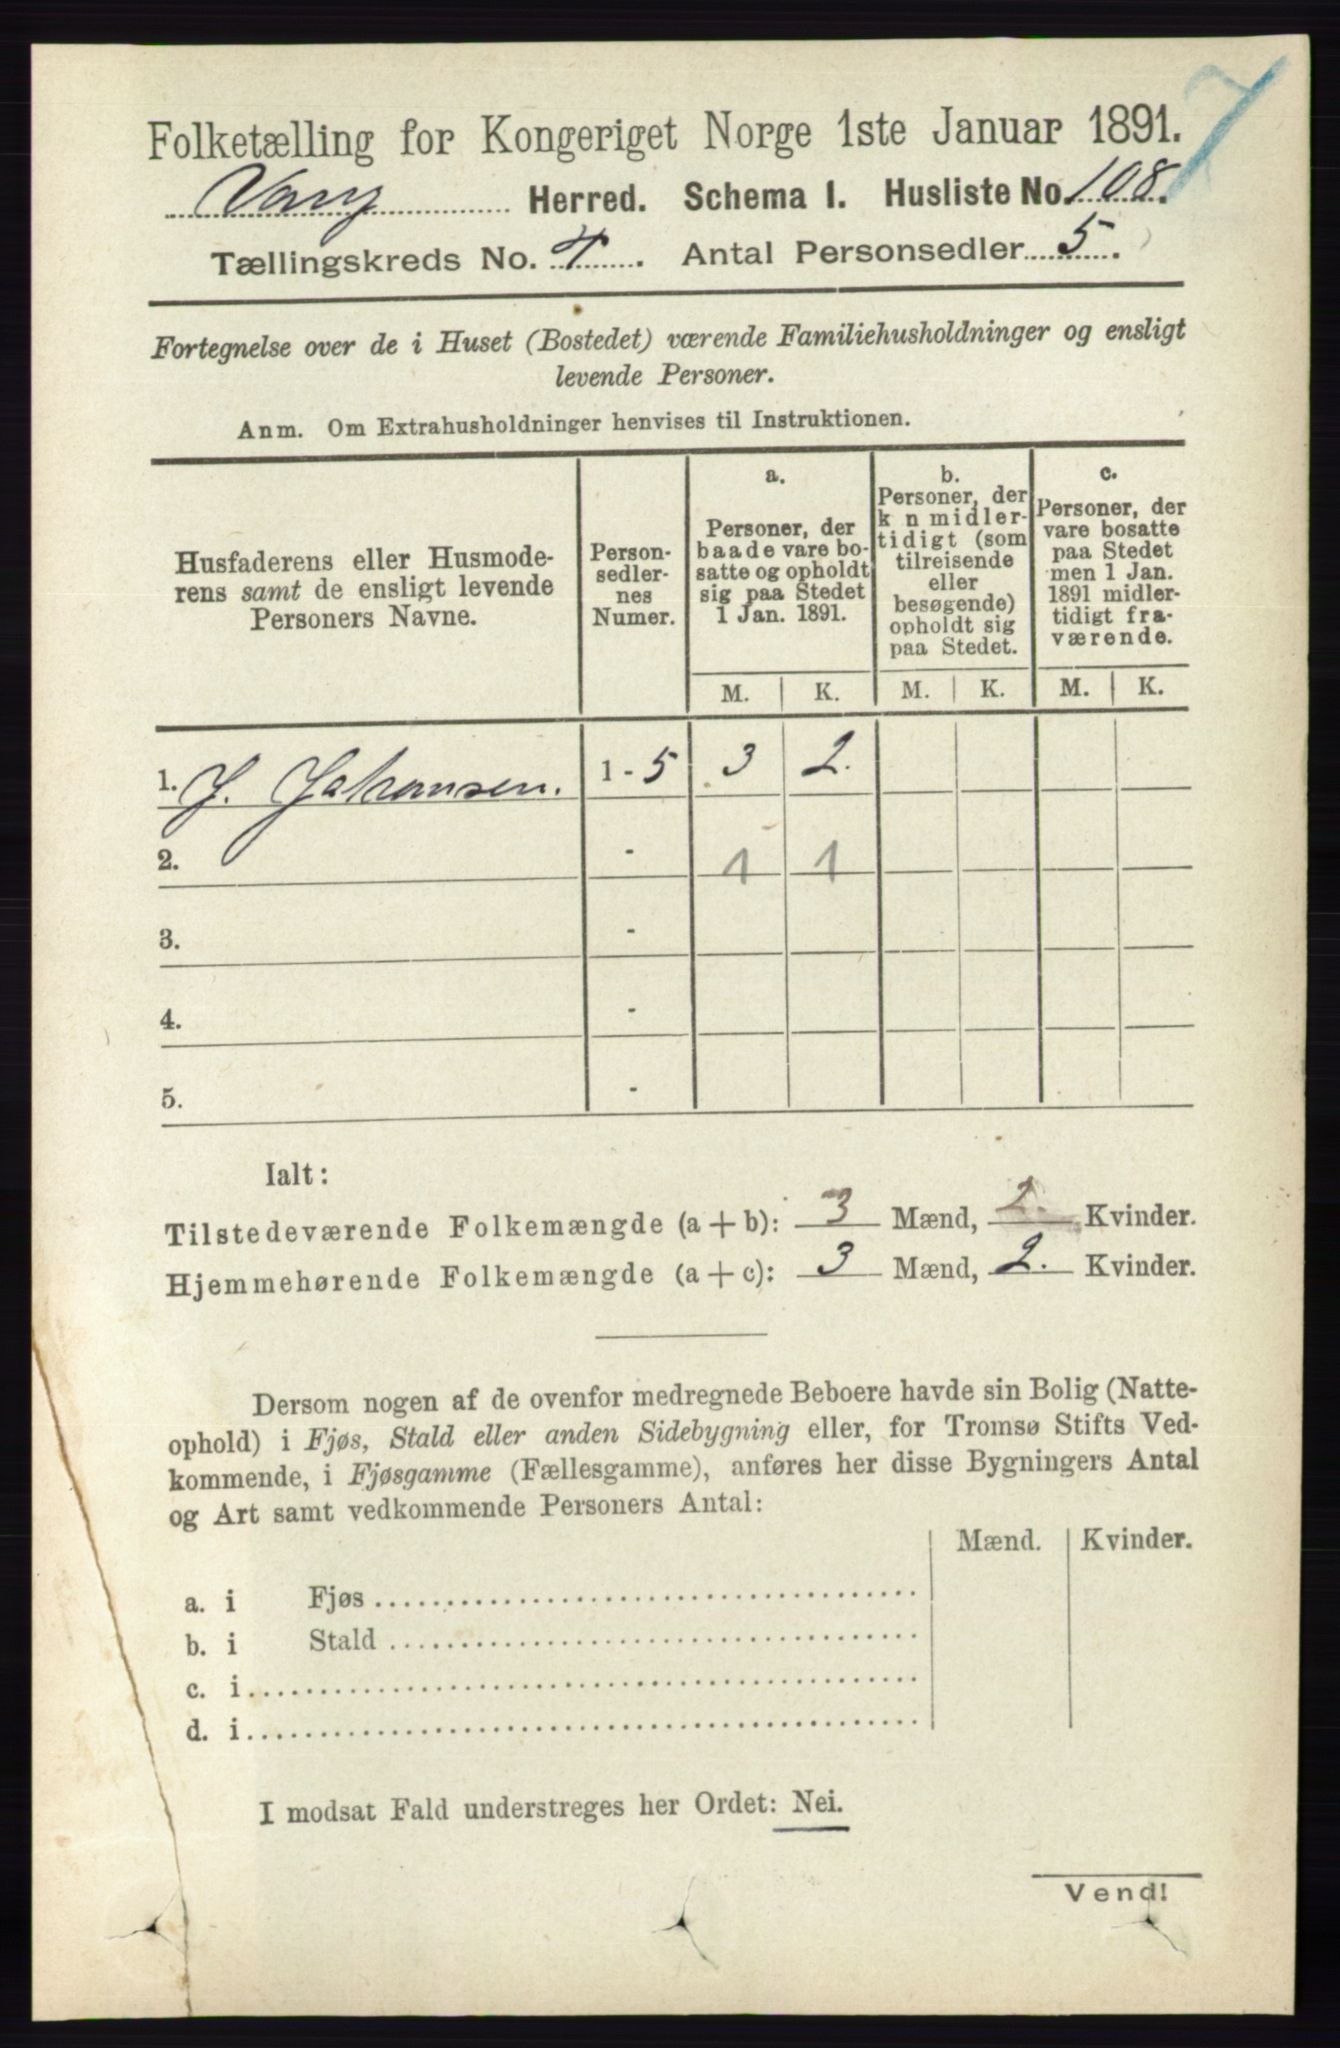 7
Folketælling for Kongeriget Norge 1ste Januar 1891.
Vang Herred. Schema I. Husliste No. 108.
Tællingskreds No. 4. Antal Personsedler 5.
Fortegnelse over de i Huset (Bostedet) værende Familiehusholdninger og ensligt
levende Personer.
Anm. Om Extrahusholdninger henvises til Instruktionen.
Husfaderens eller Husmode-
rens samt de ensligt levende
Personers Navne.
Person-
sedler-
nes
Numer.
a.
Personer, der
baade vare bo-
satte og opholdt
sig paa Stedet
1 Jan. 1891.
b.
Personer, der
k n midler-
tidigt (som
tilreisende
eller
besøgende)
opholdt sig
paa Stedet.
c.
Personer, der
vare bosatte
paa Stedet
men 1 Jan.
1891 midler-
tidigt fra-
værende.
M. K. M. K. M. K.
1. J. Johansen. 1 - 5 3 2.
2. - 1 1
3. -
4. -
5. -
Ialt:
Tilstedeværende Folkemængde (a + b): 3 Mænd, 2. Kvinder.
Hjemmehørende Folkemængde (a + c): 3 Mænd, 2. Kvinder.
Dersom nogen af de ovenfor medregnede Beboere havde sin Bolig (Natte-
ophold) i Fjøs, Stald eller anden Sidebygning eller, for Tromsø Stifts Ved-
kommende, i Fjøsgamme (Fællesgamme), anføres her disse Bygningers Antal
og Art samt vedkommende Personers Antal:
Mænd. Kvinder.
a. i Fjøs
b. i Stald
c. i
d. i
I modsat Fald understreges her Ordet: Nei.
Vend!